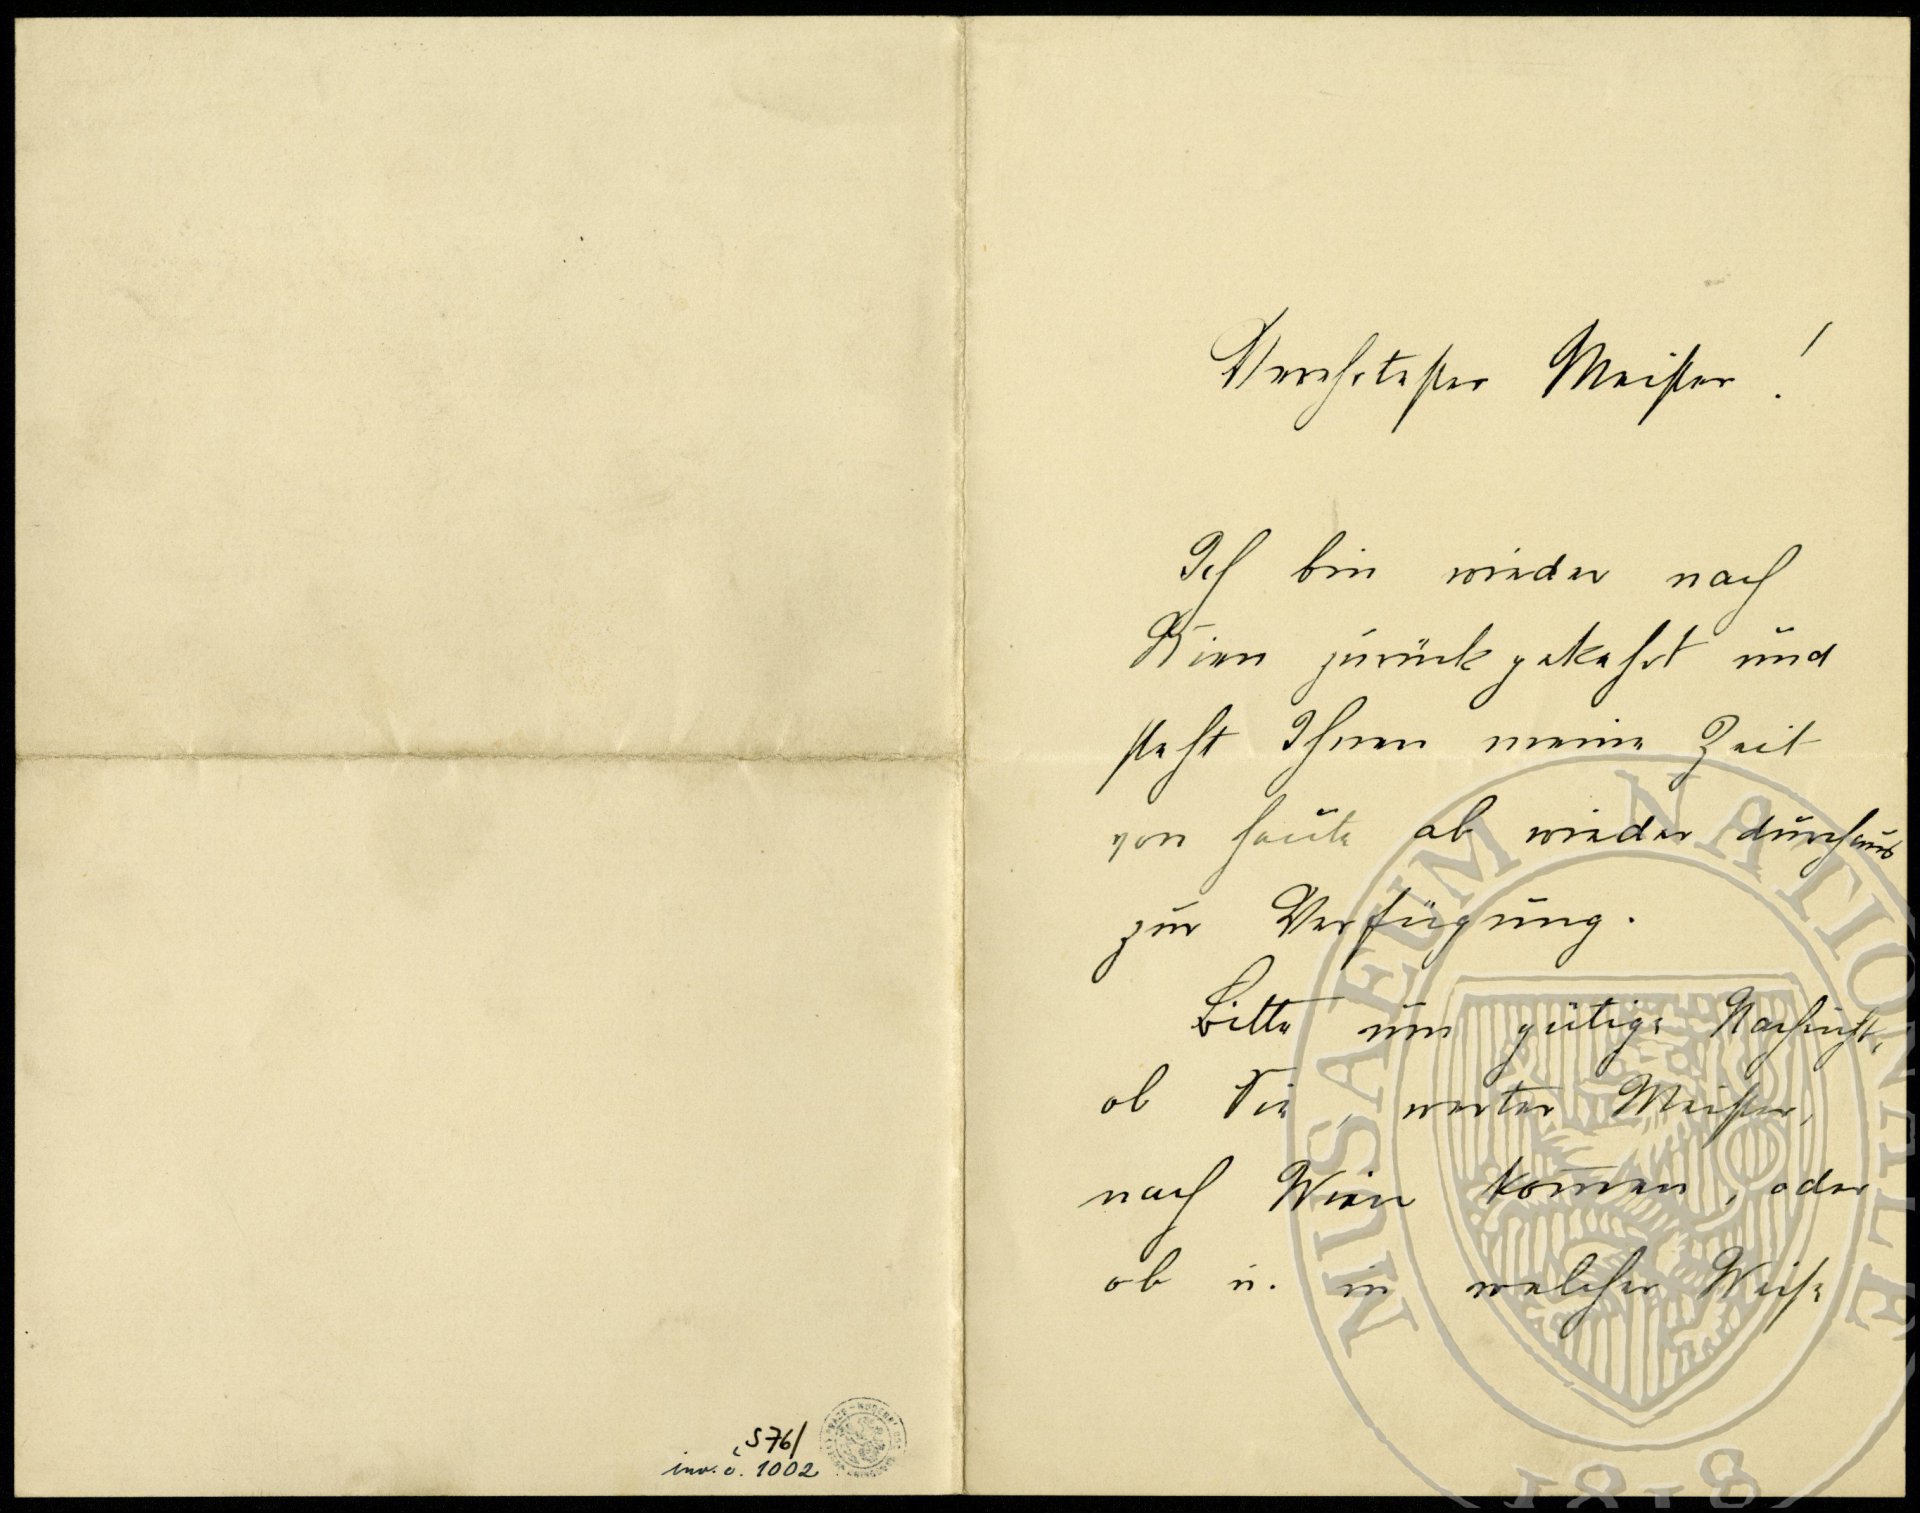 S 76/
inv. č. 1002
Verehrtester Meister!
Ich bin wieder nach
Wien zurückgekehrt und
steht Ihnen meine Zeit
von heute ab wieder durchaus
zur Verfügung.
Bitte um gütige Nachricht,
ob Sie, werter Meister,
nach Wien kom̅en, oder
ob u. in welcher Weise
MUSAEUM NATIONALE
1818